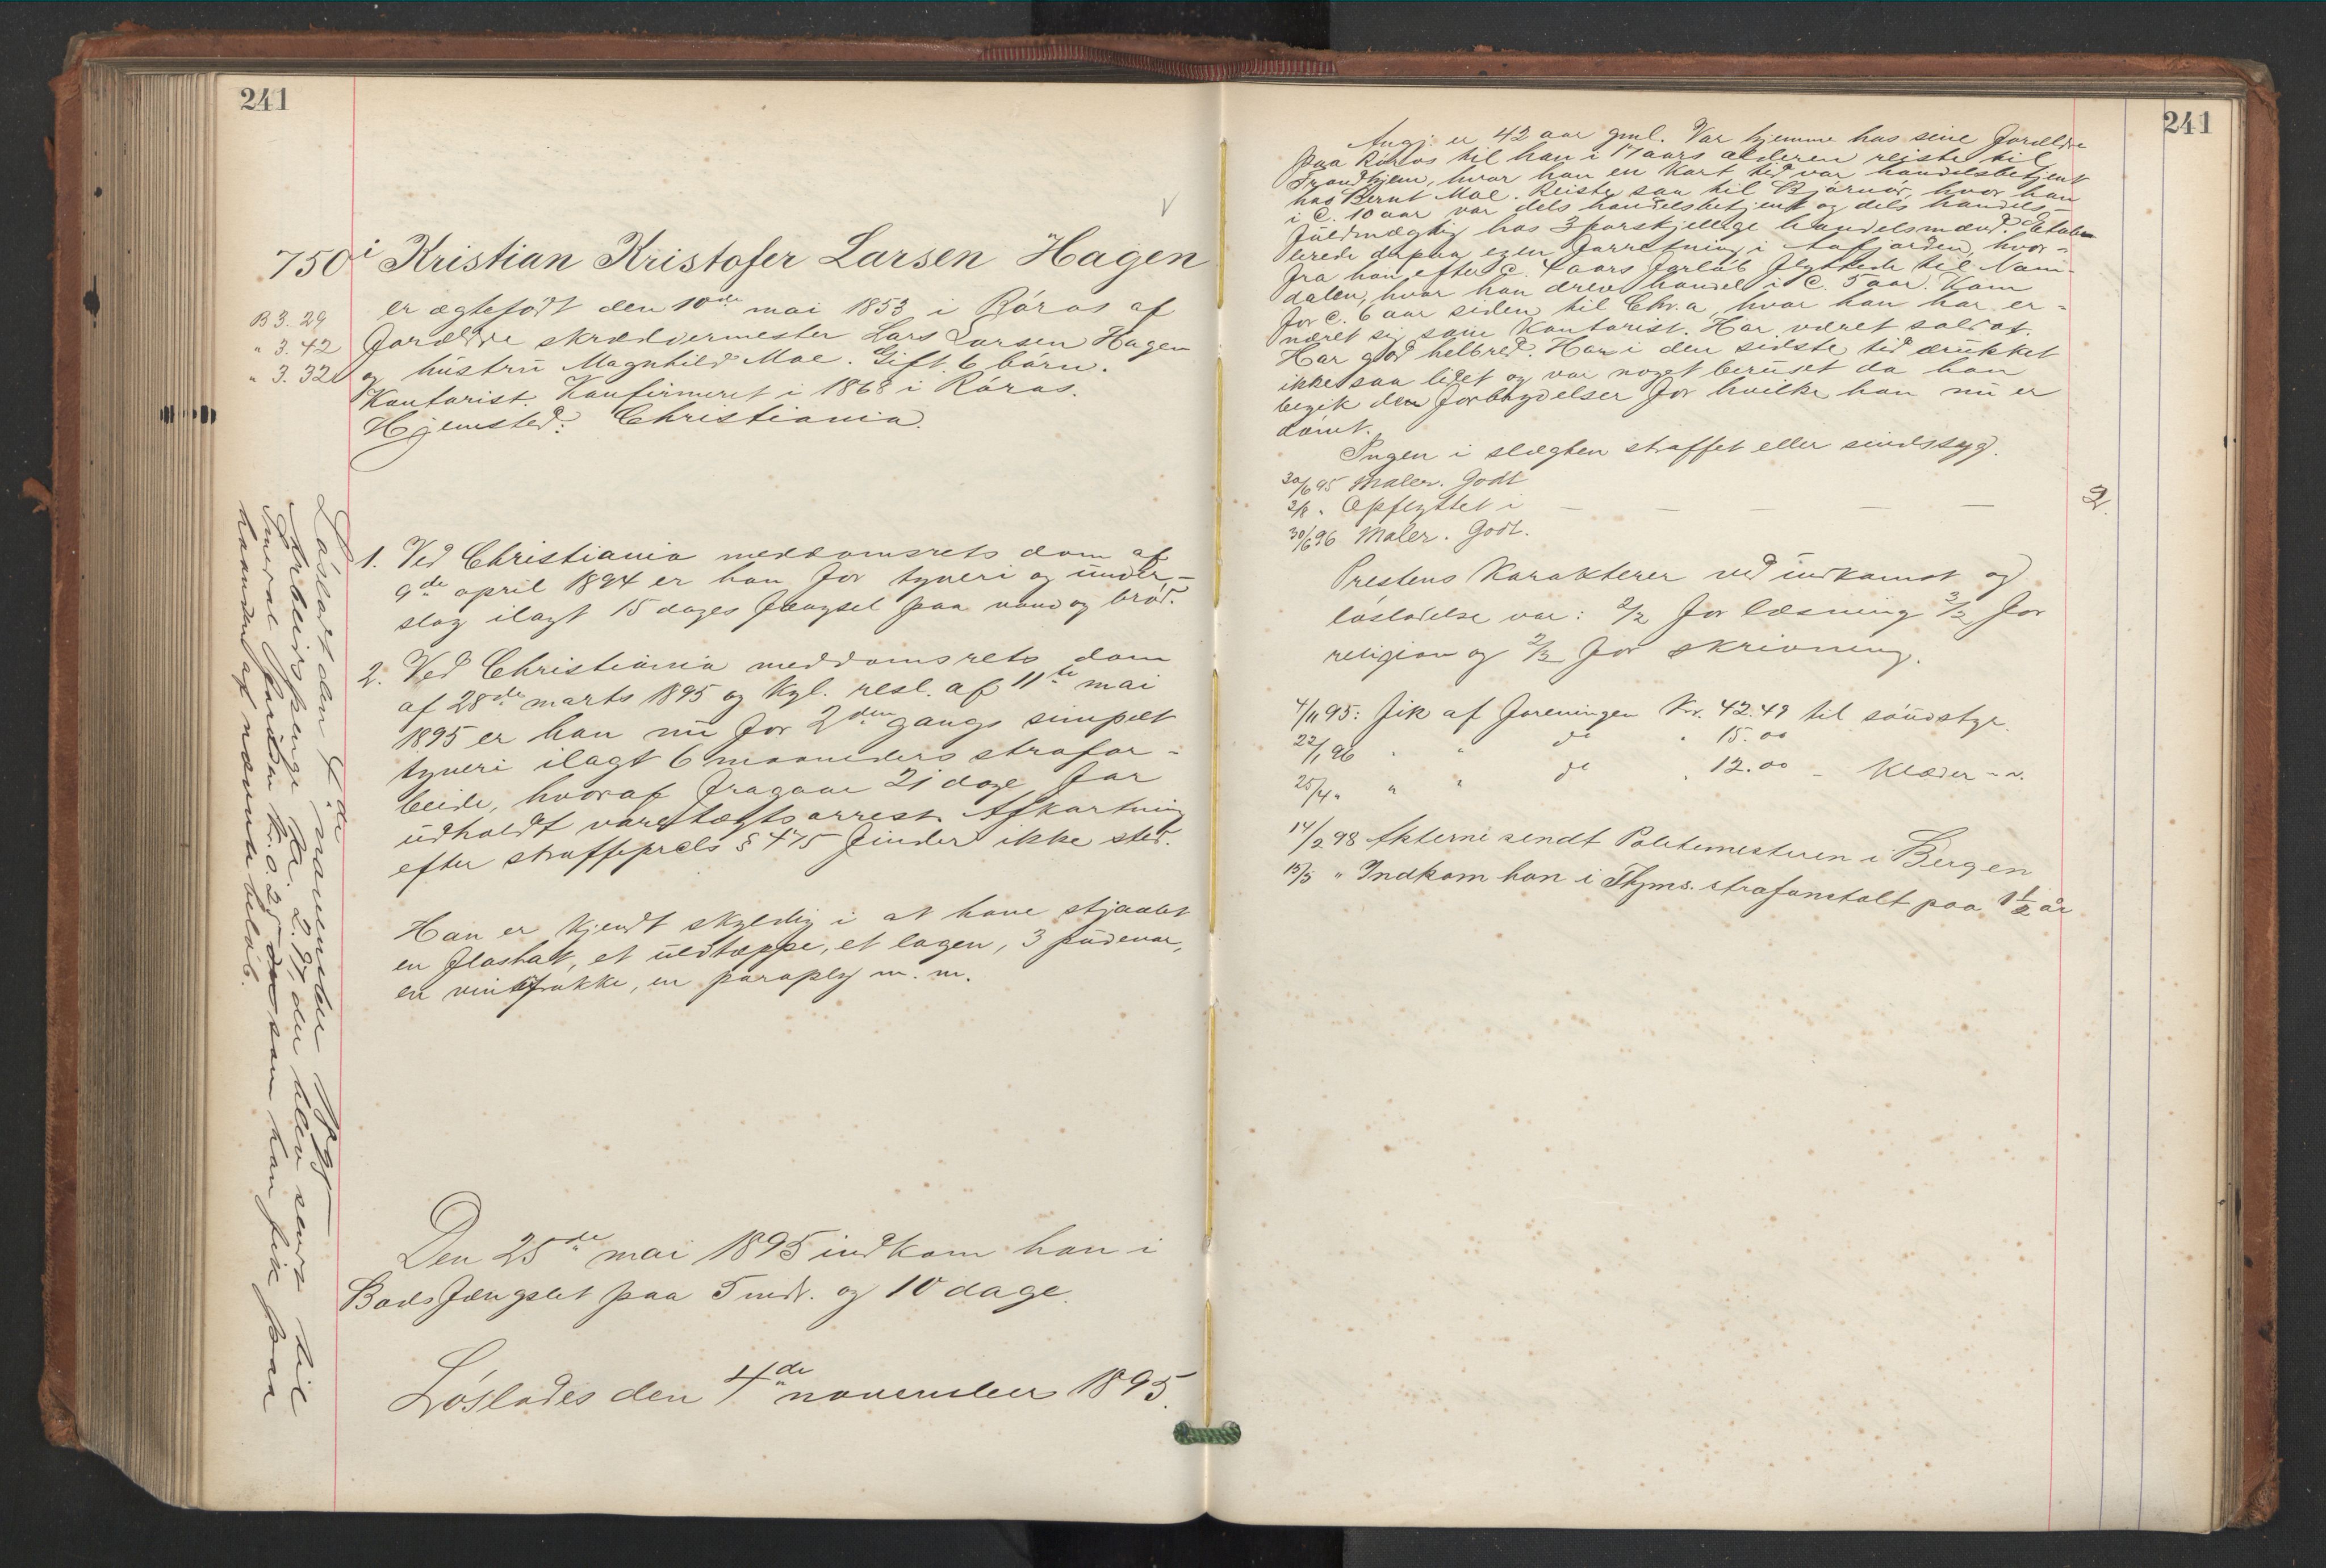 241
750i Kristian Kristofer Larsen Hagen
B 3. 29
" 3. 42
" 3. 321
er ægteføtt den 10de mai 1853 i Røros af
forældre skræddermester Lars Larsen Hagen
og hustru Magnhild Moe. Gift. 6 børn.
Kontorist. Konfirmeret i 1868 i Røros.
Hjemsted: Christiania.
1. Ved Christiania meddomsrets dom af
9de april 1894 er han for tyveri og under-
slag ilagt 15 dages fængsel paa vand og brød.
2. Ved Christiania meddomsrets dom
af 28de marts 1895 og kgl. resl. af 11te mai
1895 er han nu for 2den gangs simpelt
tyveri ilagt 6 maaneders strafar-
beide, hvoraf fragaar 21 dage for
udholdt varetægtsarrest. Afkortning
efter straffeprcls § 475 finder ikke sted.
Han er kjendt skyldig i at have stjaalet
en floshat, et uldtæppe, et lagen, 3 pudevar,
en vinterfrakke, en paraply m. m.
Den 25de mai 1895 indkom han i
Bodsfængslet paa 5 mdr. og 10 dage.
Løslades den 4de november 1895.
Løsladt den 4de november 1895
Arbeidspenge Kr. 2.97, der blev sendt til
han fik paa
haanden af nævnte beløb.
241
Angj. er 42 aar gml. Var hjemme hos sine forældre
paa Røros til han i 17 aars alderen reiste til
Trondhjem, hvor han en kort tid var handelsbetjent
hos Bernt Moe. Reiste saa til Bjørnør, hvor han
i c. 10 aar var dels handelsbetjent og dels handels-
fuldmægtig hos 3 forskjellige handelsmænd. Etab-
lerede derpaa egen forretning i Aafjorden, hvor-
fra han efter c. 4 aars forløb flyttede til Nam-
dalen, hvor han drev handel i c. 5 aar. Kom
for c. 6 aar siden til Chr.a, hvor han har er-
næret sig som kontorist. Har været soldat.
Har god helbred. Har i den sidste tid drukket
ikke saa lidet og var noget beruset da han
begik den forbrydelser for hvilke han nu er
dømt.
Ingen i slægten straffet eller sindssyg.
30/6 95 Maler. Godt
2/8 " Opflyttet i — — — — — 2.
30/6 96 Maler. Godt.
Prestens karakterer ved indkomst og
løsladelse var: 2/2 for læsning 2/2 for
religion og 2/2 for skrivning.
4/11 95: fik af foreningen Kr. 42.49 til
22/1 96 " " do " 15.00
25/4 " " " do " 12.00 – Klæder – m.
14/2 98 Akterne sendt Politimesteren i Bergen
15/3 " Indkom han i Thjms. strafanstalt paa 1 1/2 år